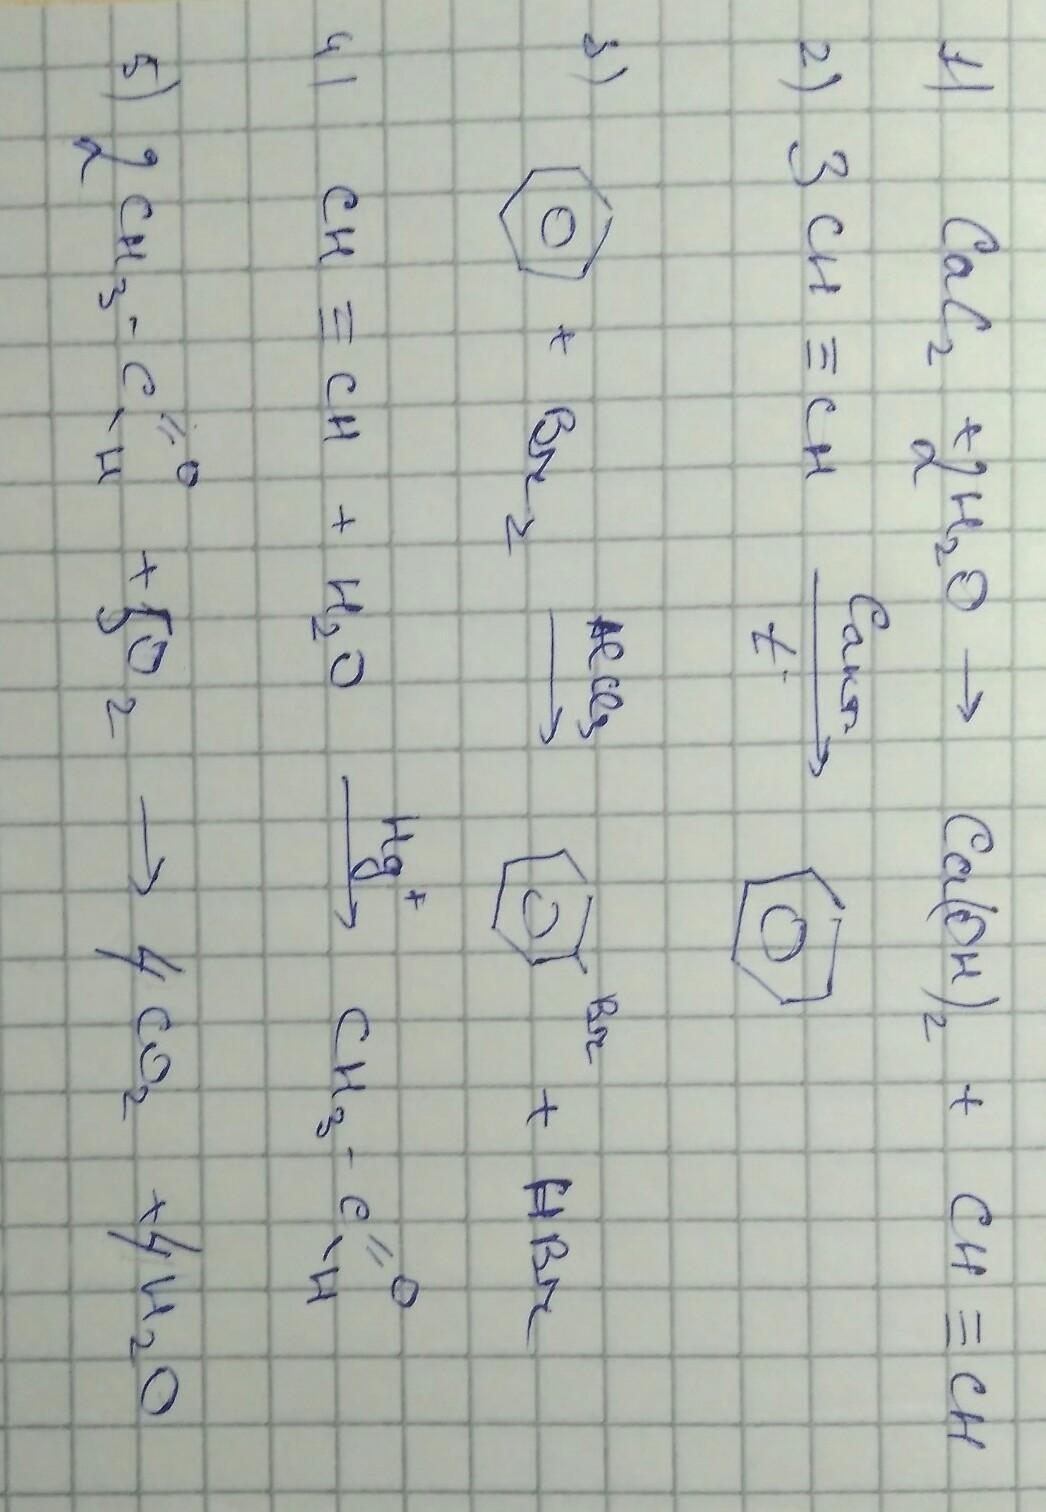 1) CaC2 + 2H2O → Ca(OH)2 + CH≡CH
2) 3CH≡CH Cакт. t° →
3) + Br2 AlCl3 → Br + HBr
4) CH≡CH + H2O Hg+ → CH3-C=O-H
5) 2CH3-C=O-H + 5O2 → 4CO2 + 4H2O